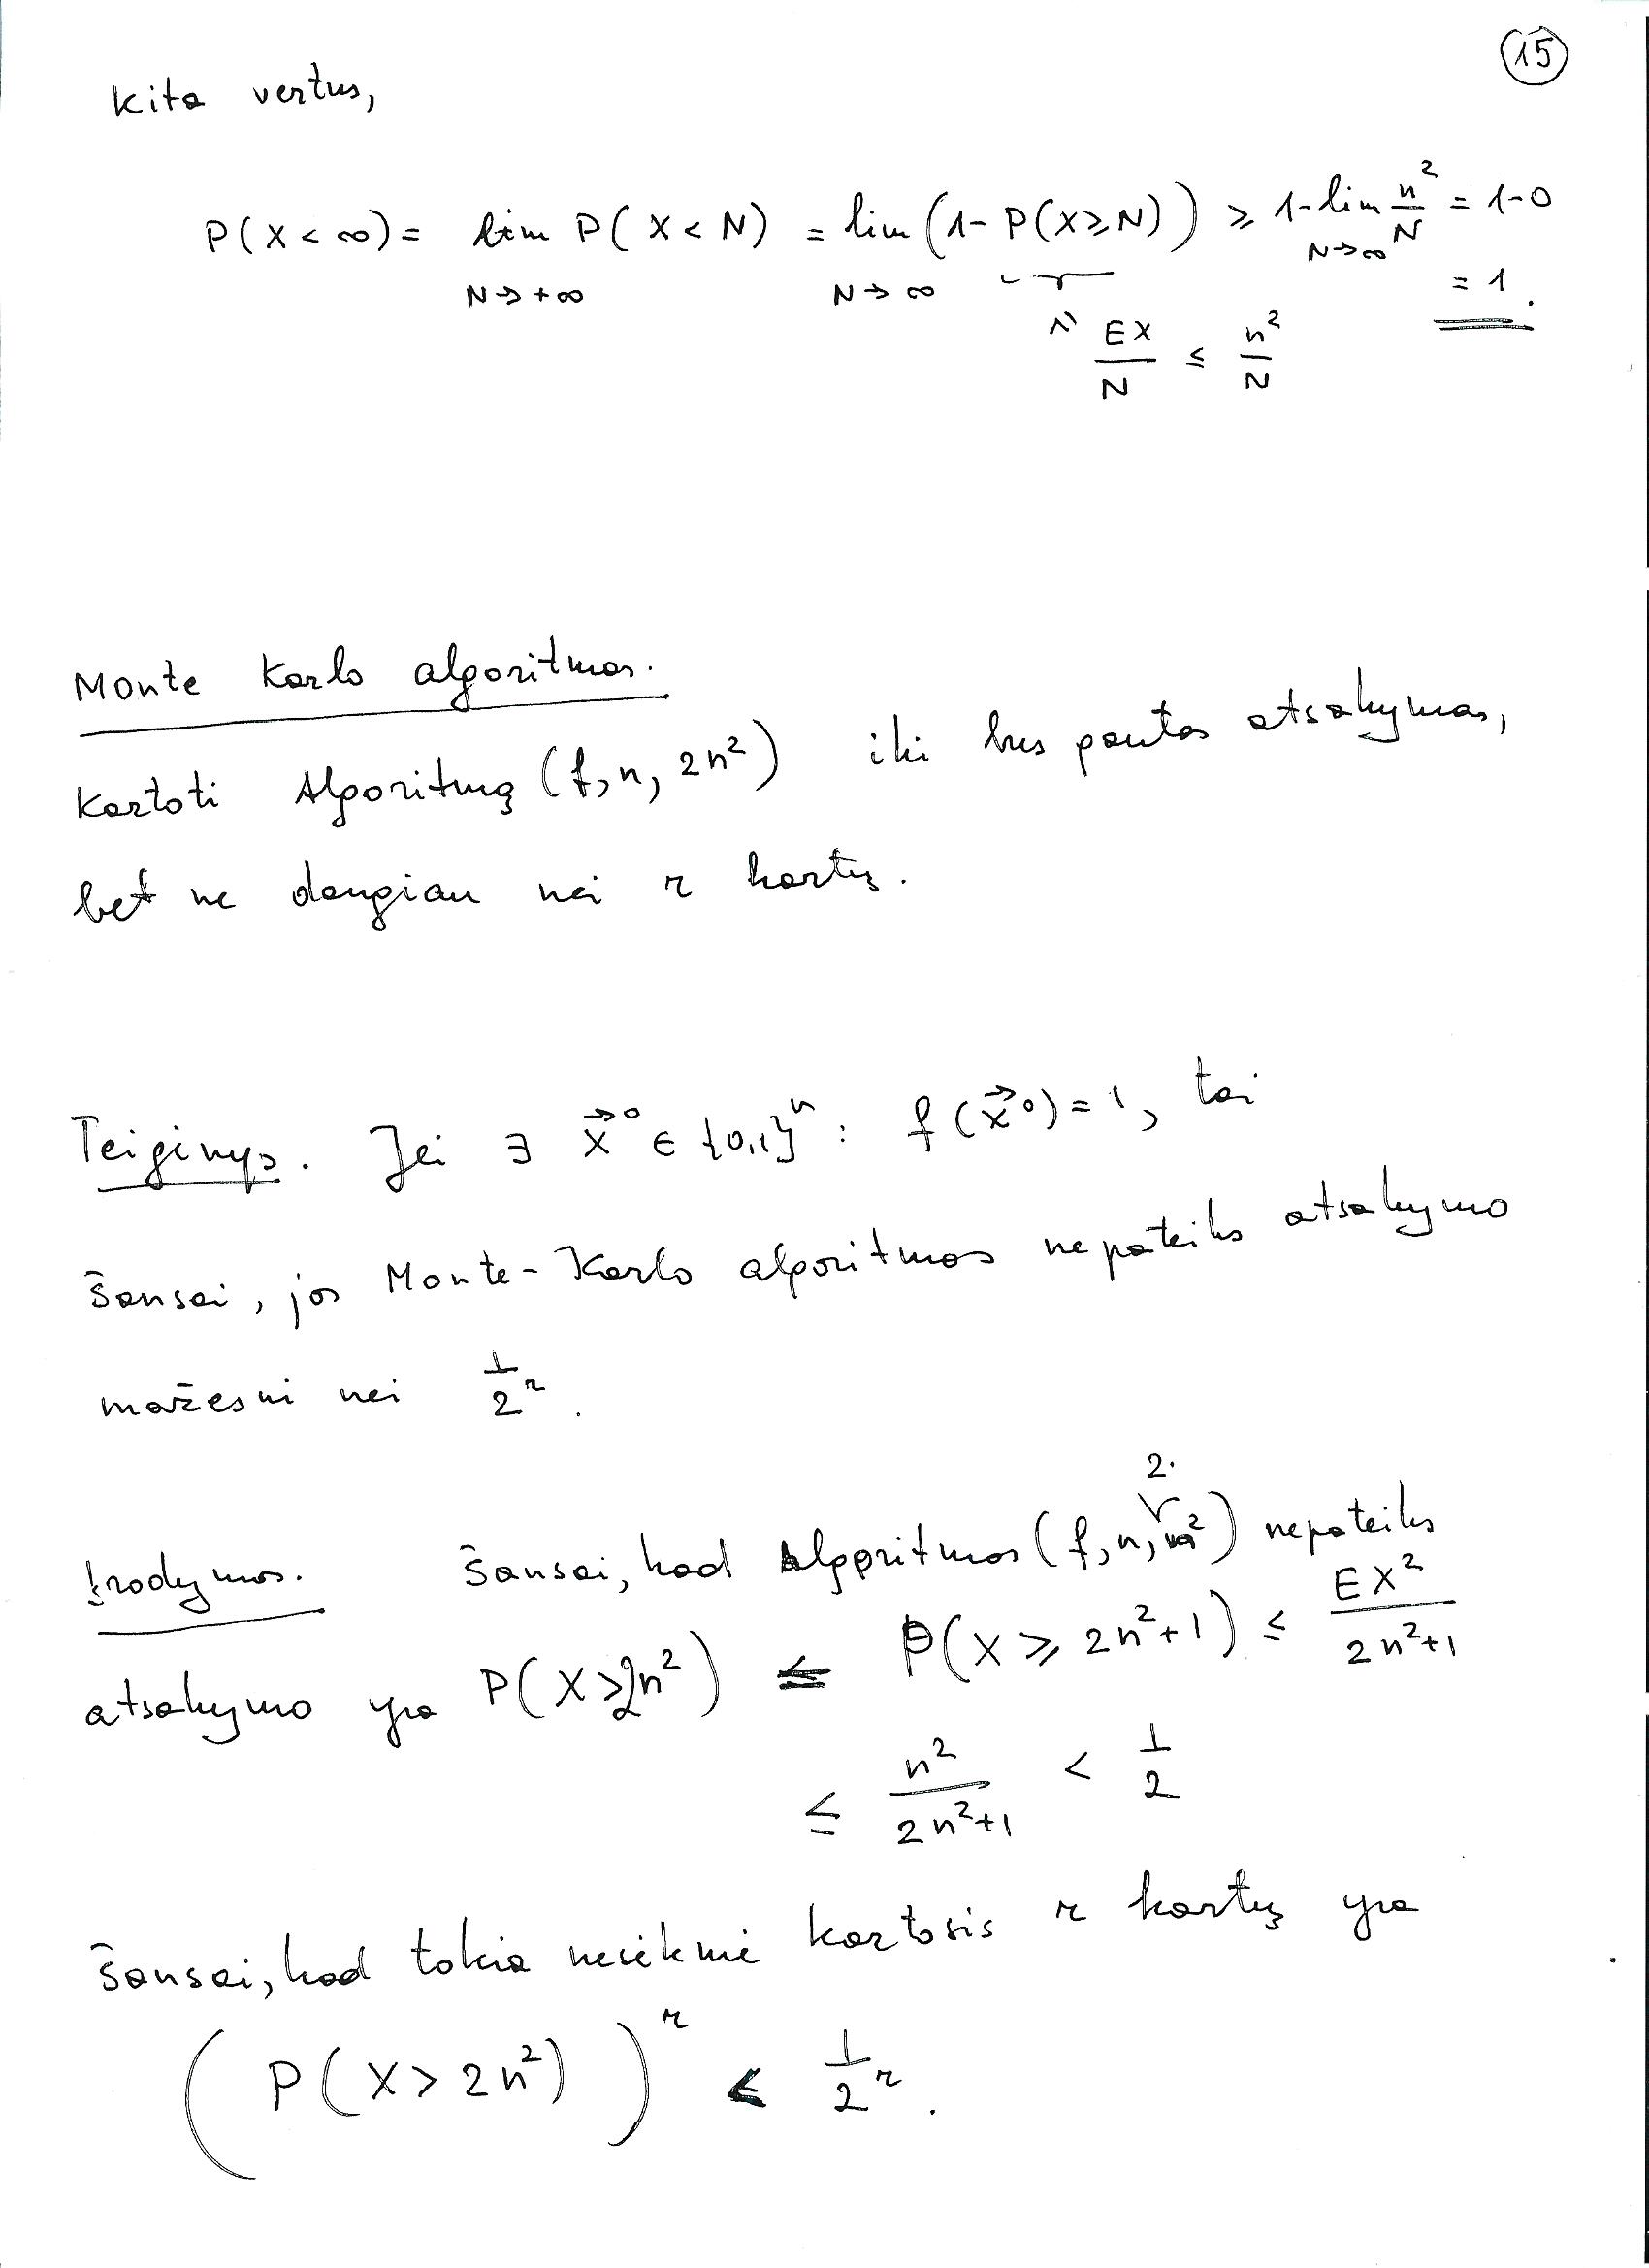 15
Kita vertus,
P(X < ∞) = lim P(X < N) = lim (1 - P(X ≥ N)) ≥ 1 - lim n²/N = 1-0
N→+∞ N→∞ N→∞
= 1.
EX/N ≤ n²/N
Monte Karlo algoritmas.
Kartoti Algoritmą (f, n, 2n²) iki bus gautas atsakymas,
bet ne daugiau nei r kartų.
Teiginys. Jei ∃ x⃗⁰ ∈ {0,1}ⁿ : f(x⃗⁰) = 1, tai
šansai, jog Monte-Karlo algoritmas nepateiks atsakymo
mažesni nei 1/2ʳ.
Įrodymas. Šansai, kad Algoritmas (f, n, 2·n²) nepateiks
atsakymo yra P(X > 2n²) ≤ P(X ≥ 2n²+1) ≤ EX²/(2n²+1)
≤ n²/(2n²+1) < 1/2
Šansai, kad tokia nesėkmė kartosis r kartų yra
(P(X > 2n²))ʳ < 1/2ʳ.